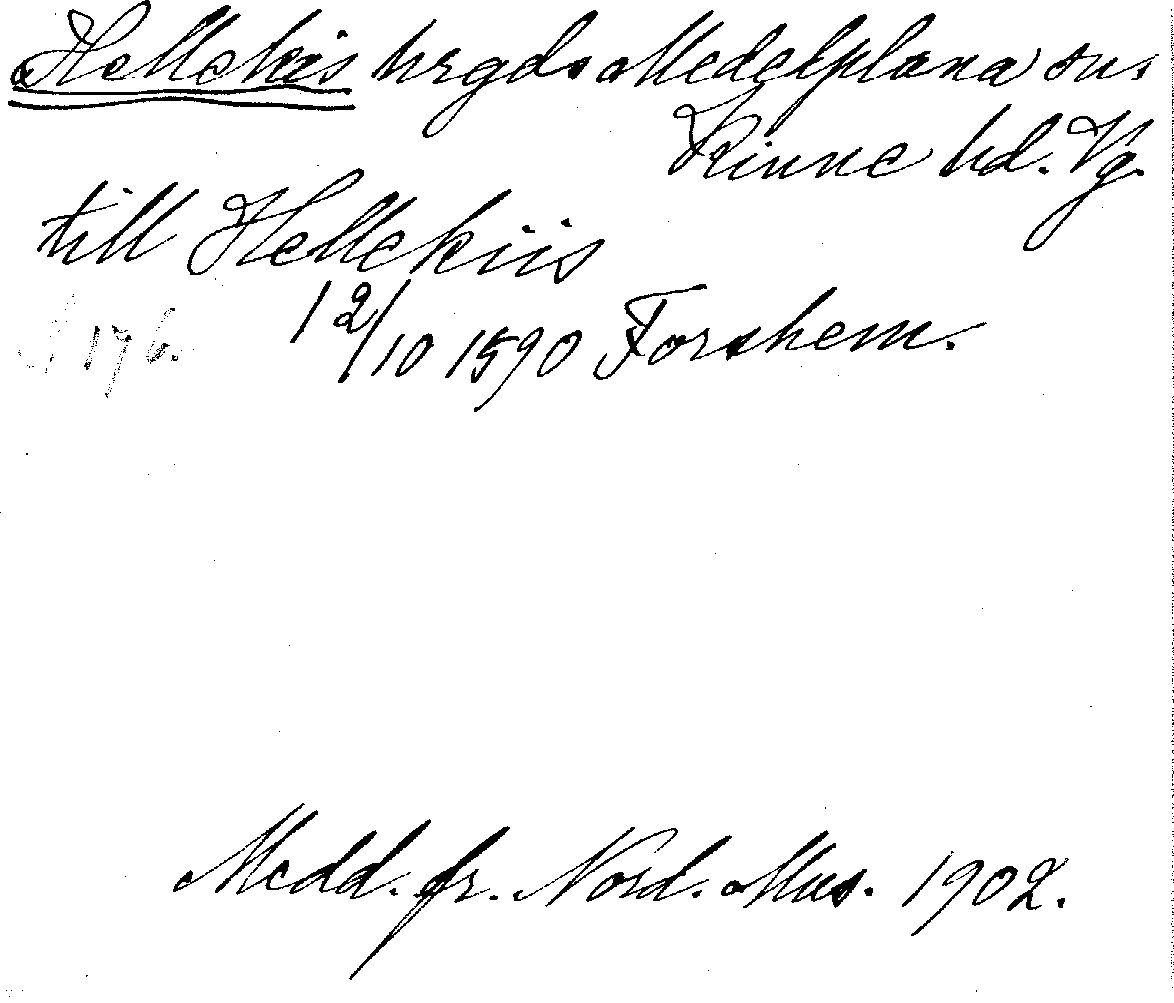 Hellekis hrgd. Medelplana sn.
Kinne hd. Vg.
till Hellekiis
12/10 1590 Forshem.
S 176.
Medd. fr. Nord. Mus. 1902.